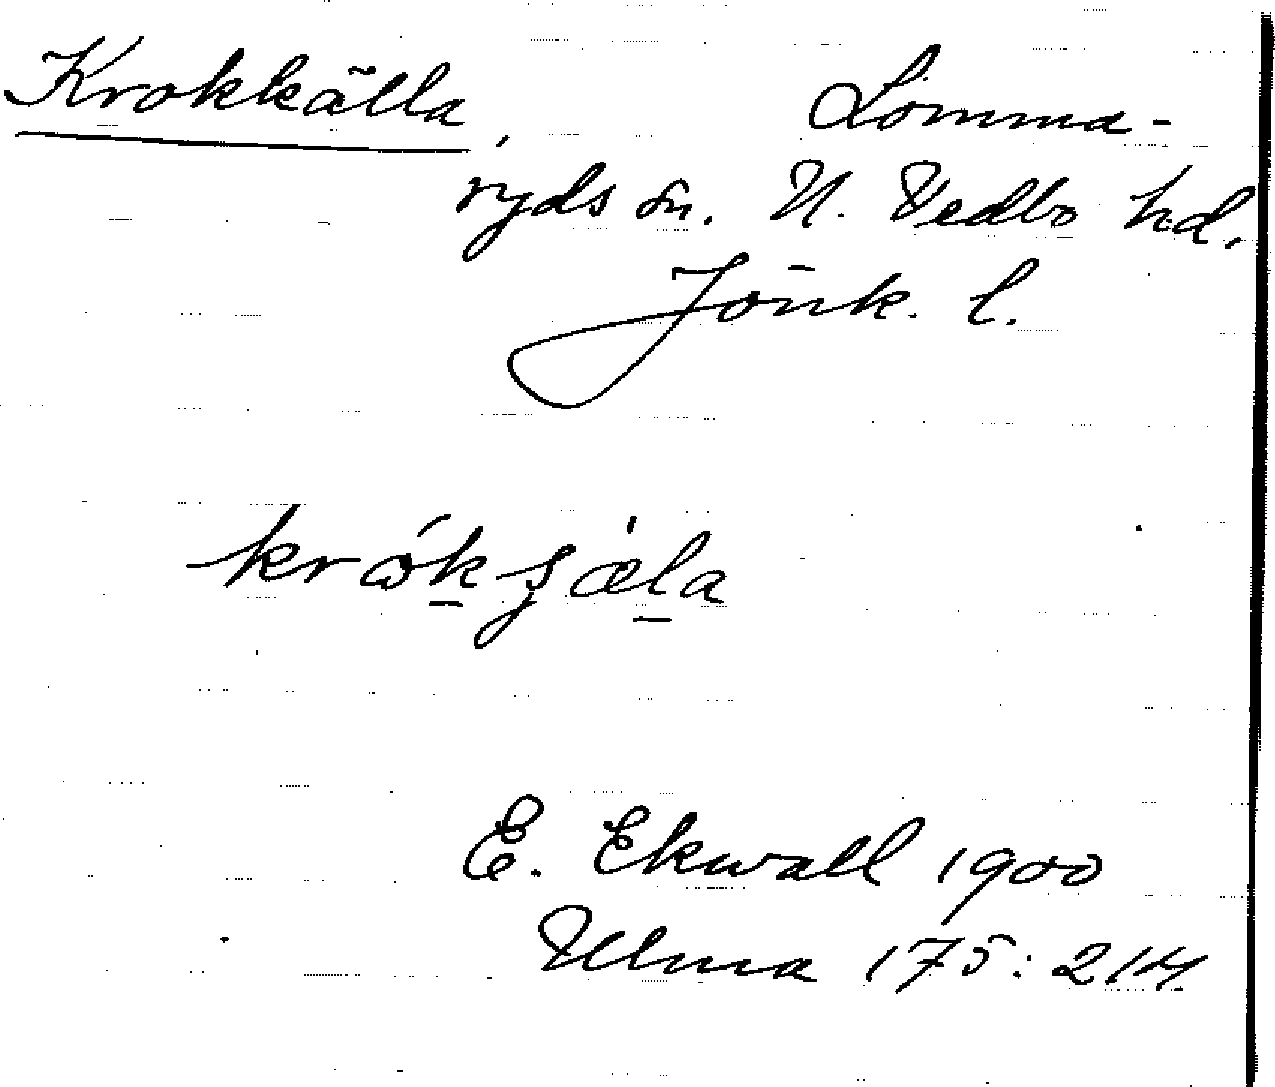 Krokkälla, Lomma-
ryds sn. N. Vedbo hd.
Jönk. l.
E. Ekwall 1900
Ulma 175: 214